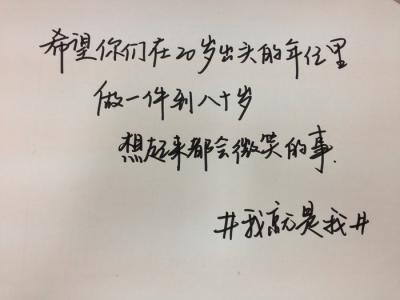 希望你们在20岁出头的年任里
做一件到八十岁
想起来都会微笑的事.
#我就是我#